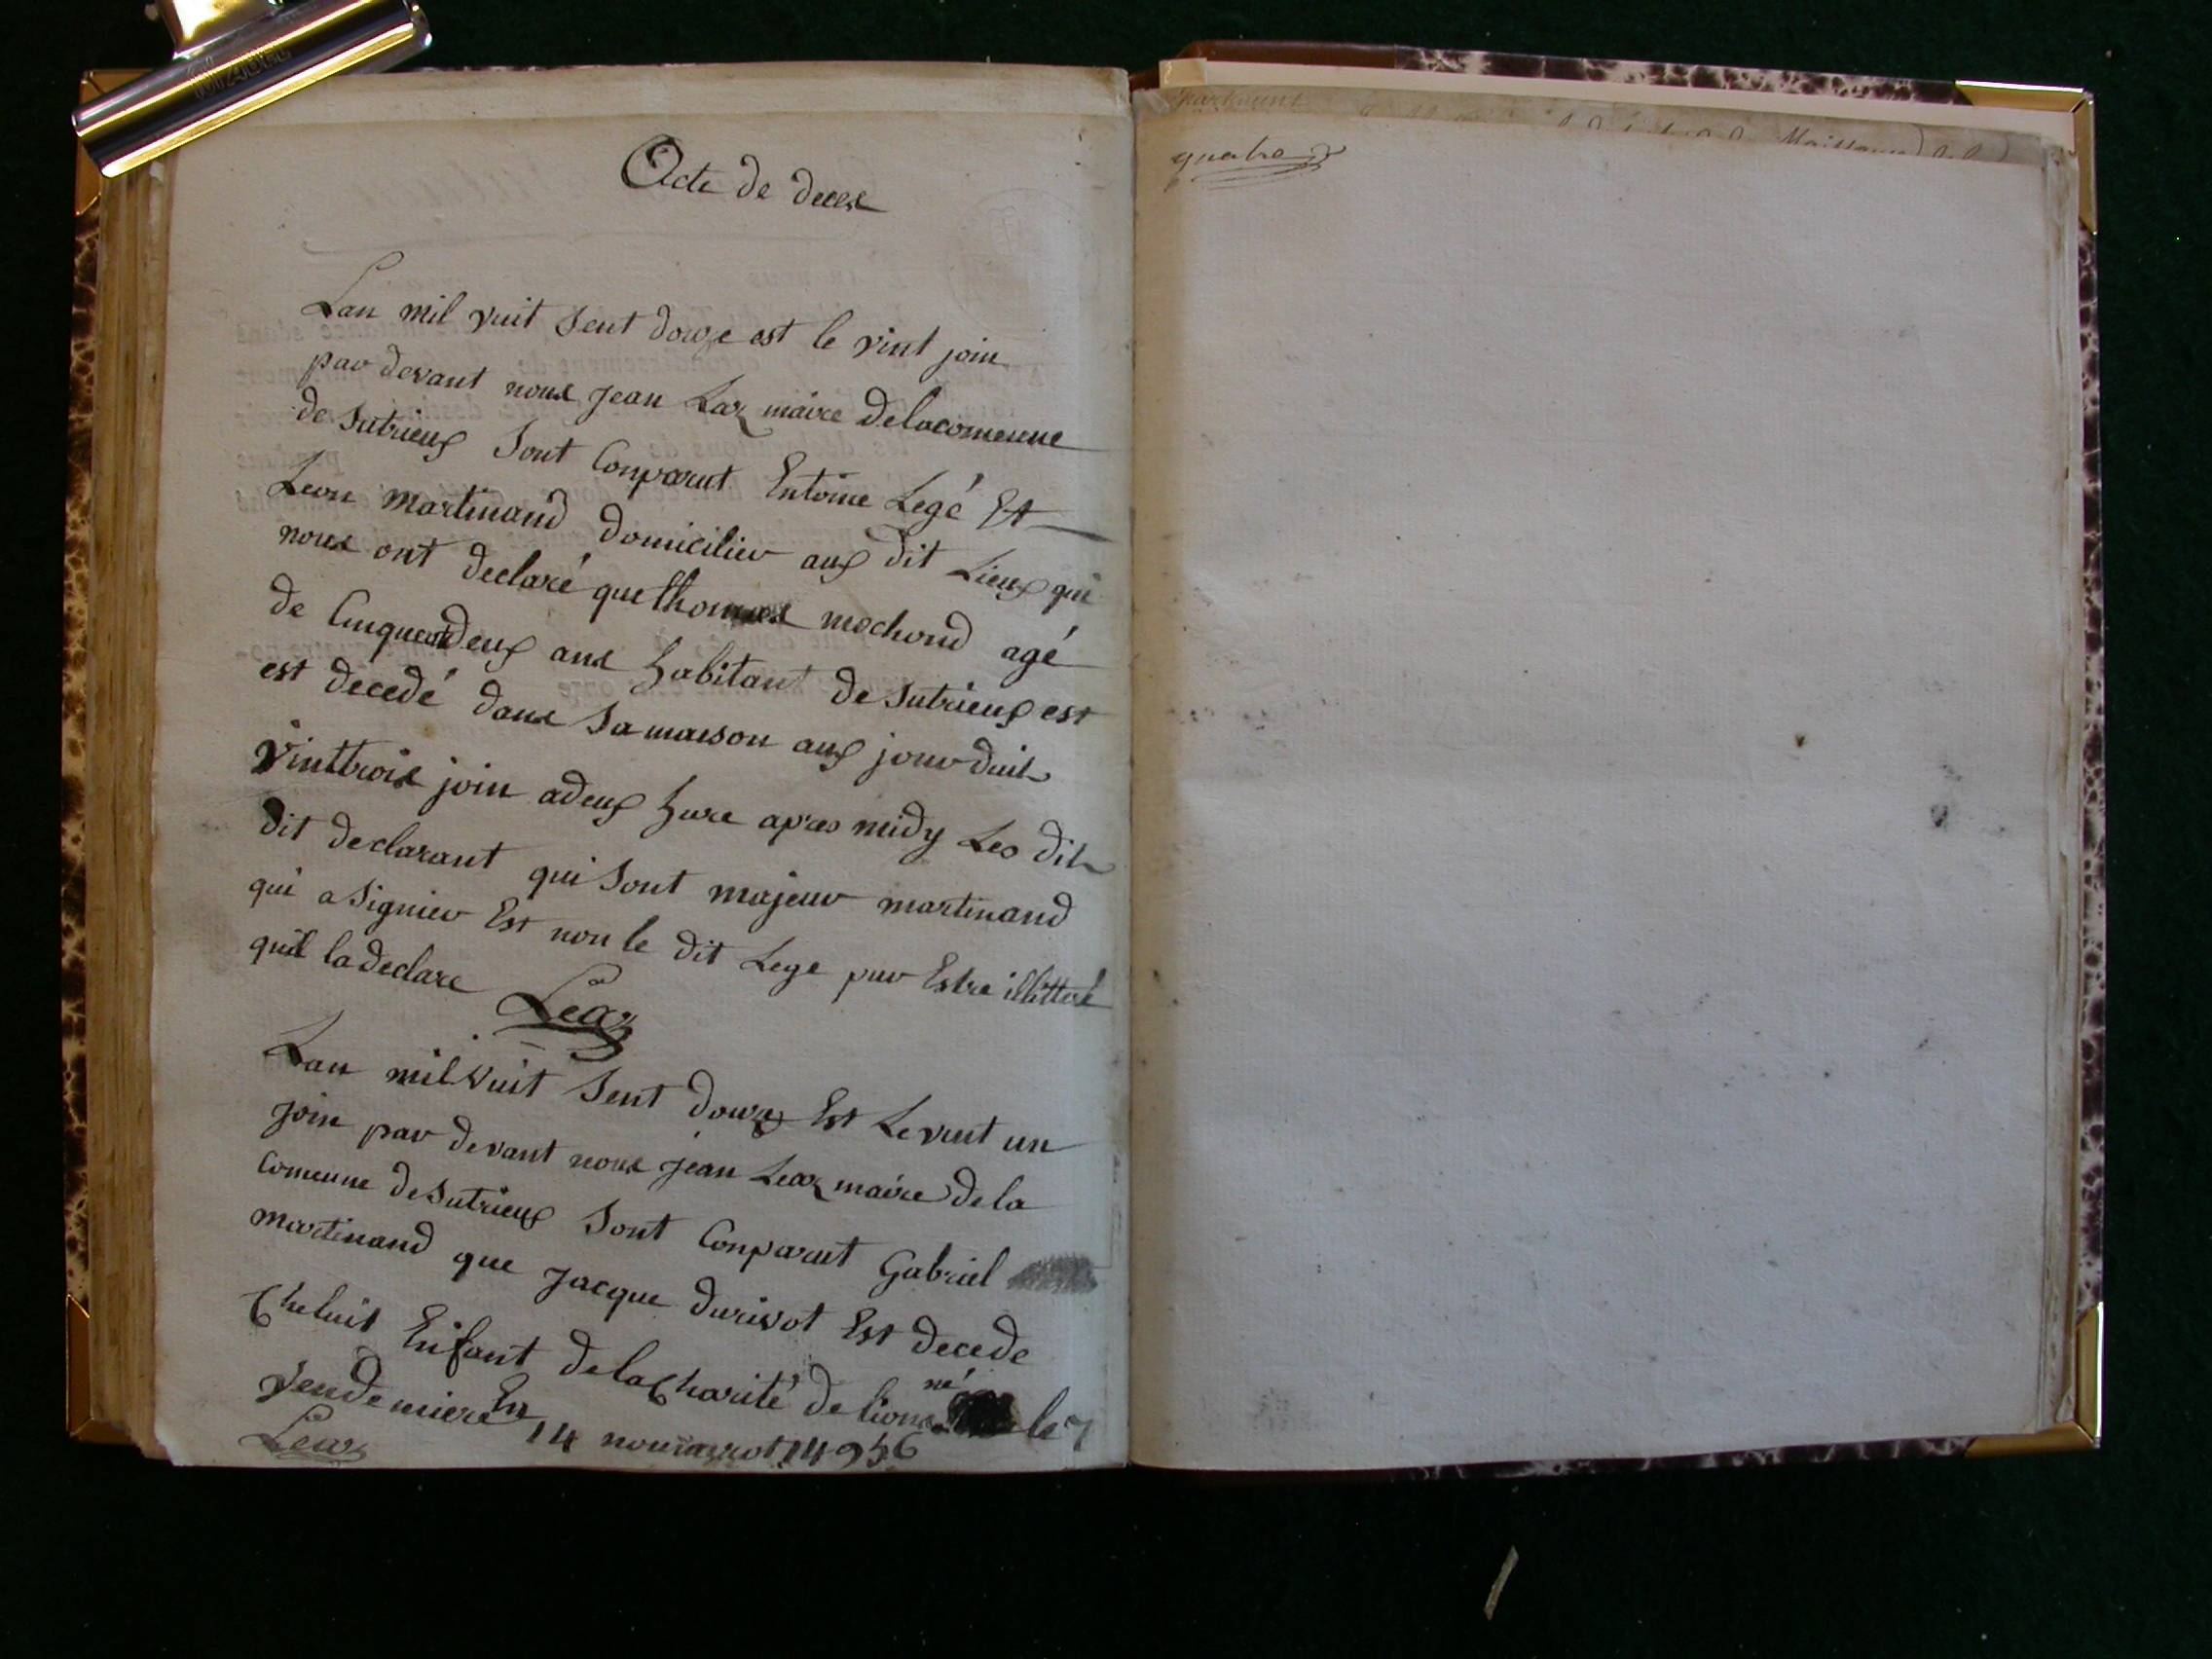 Acte de deces
Lan mil vuit sent douze est le vint join
par devant nous jean Laz maire delacomeune
de sutrieux sont Conparut Entoine Legé Et
Leon martinand domicilier aux dit Lieux qui
nous ont declaré que thomas mochond agé
de Cinquentdeux ans habitant de sutrieux est
est decedé dans sa maison aux jour duit
vinttrois join adeux hure apres midy Les dit
dit declarant qui sont majeur martinand
qui a signier Est non le dit Lege pur Estre illittéré
quil la declare Leaz
Lan mil vuit sent douze Est Le vint un
join par devant nous jean Leaz maire de la
comeune de sutrieux sont Conparut Gabriel
martinand que jacque durivot Est decede
Cheluit Enfant de la Charité de lions né le 7
vendemiere En 14 14956
Leaz
quatre